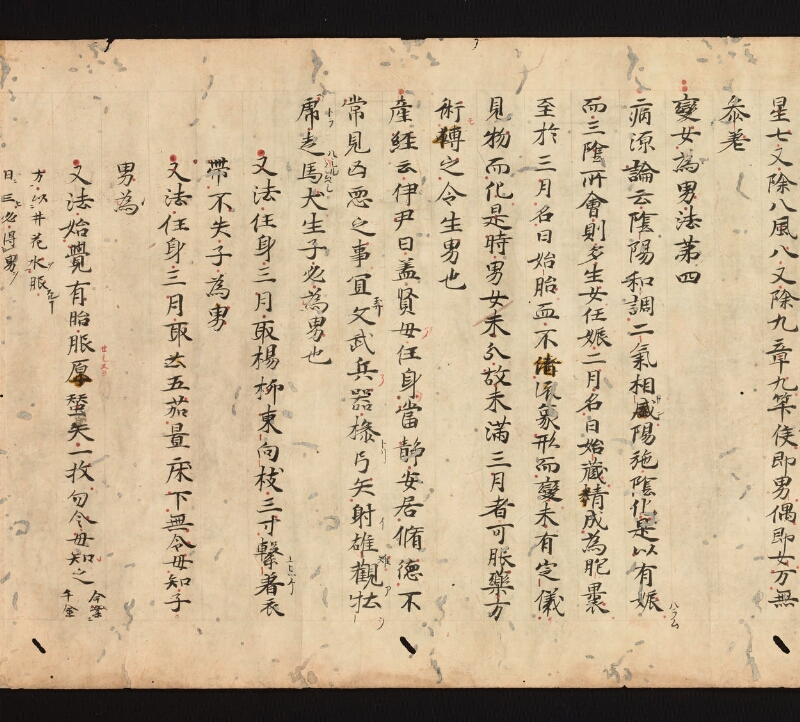 星七又除八風八又除九章九筭佼即男偶即女万無
参差
變女為男法第四
病源論云陰陽和調二氣相感陽施陰化是以有娠
ハラム
而三陰所會則多生女任娠二月名曰始藏精成為胞裹
至於三月名曰始胎血不流象形而變未有定儀
見物而化是時男女未分故未滿三月者可服藥方
術轉之令生男也
産經云伊尹曰盖賢母任身當靜安居脩德不
常見凶惡之事宜文武兵器操弓矢射雄觀牡
虎走馬犬生子必為男也
又法任身三月取楊柳東向枝三寸繋著衣
帶不失子為男
又法任身三月取五茄置床下無令母知子
男為
又法始覺有胎服原蠶矢一枚勿令母知之
今案
千金
方以井花水服
日三必得男